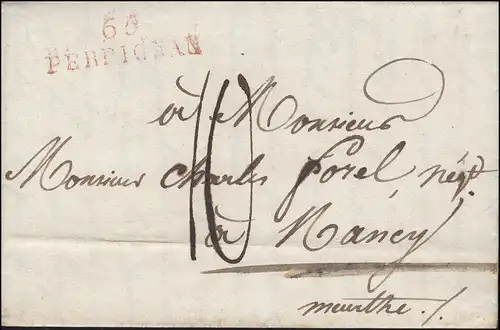 65
PERPIGNAN
à Monsieur
Monsieur Charles Forel négt
10
à Nancy
meurthe./.